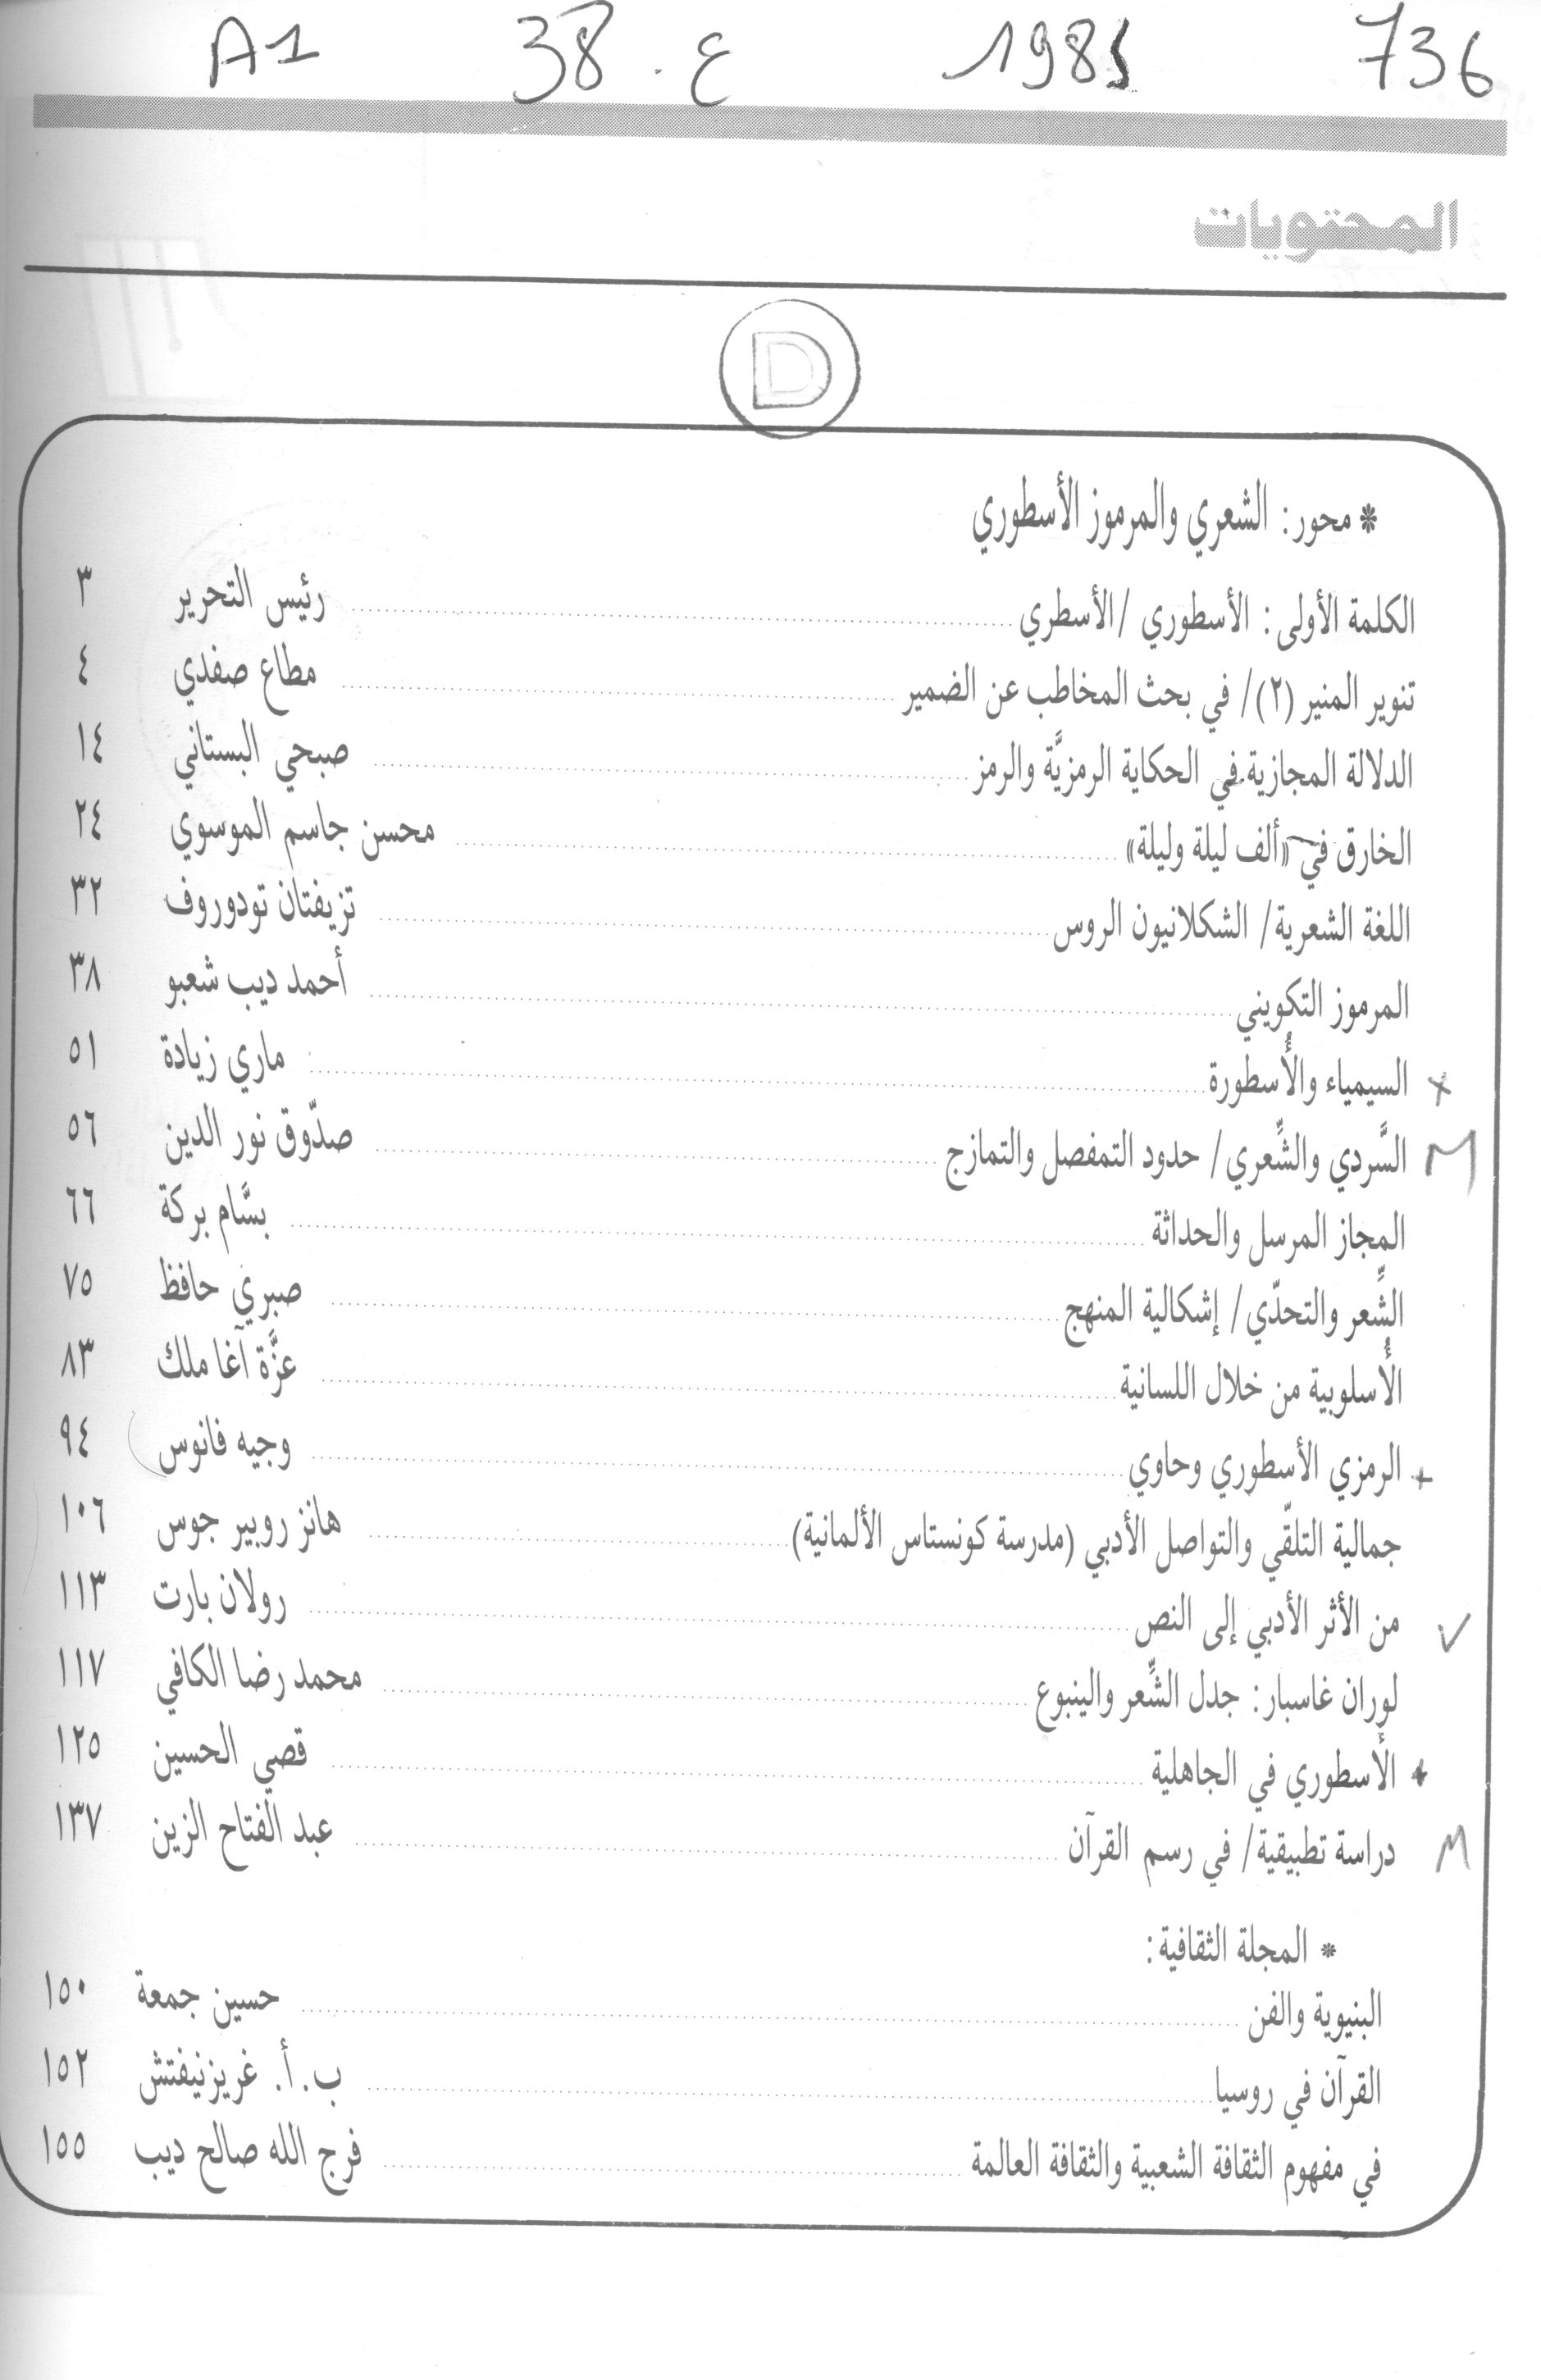 736 1985 ع. 38 A1
المحتويات
D
* محور: الشعري والمرموز الأسطوري
الكلمة الأولى: الأسطوري /الأسطري ........ رئيس التحرير ٣
تنوير المنير (٢)/ في بحث المخاطب عن الضمير ........ مطاع صفدي ٤
الدلالة المجازية في الحكاية الرمزيَّة والرمز ........ صبحي البستاني ١٤
الخارق في «ألف ليلة وليلة» ........ محسن جاسم الموسوي ٢٤
اللغة الشعرية/ الشكلانيون الروس ........ تزيفتان تودوروف ٣٢
المرموز التكويني ........ أحمد ديب شعبو ٣٨
x السيمياء والأُسطورة ........ ماري زيادة ٥١
M السَّردي والشِّعري/ حدود التمفصل والتمازج ........ صدّوق نور الدين ٥٦
المجاز المرسل والحداثة ........ بسَّام بركة ٦٦
الشِّعر والتحدّي/ إشكالية المنهج ........ صبري حافظ ٧٥
الأُسلوبية من خلال اللسانية ........ عزَّة آغا ملك ٨٣
+ الرمزي الأسطوري وحاوي ........ وجيه فانوس ٩٤
جمالية التلقّي والتواصل الأدبي (مدرسة كونستاس الألمانية) ........ هانز روبير جوس ١٠٦
✓ من الأثر الأدبي إلى النص ........ رولان بارت ١١٣
لوران غاسبار: جدل الشِّعر والينبوع ........ محمد رضا الكافي ١١٧
+ الأسطوري في الجاهلية ........ قصي الحسين ١٢٥
M دراسة تطبيقية/ في رسم القرآن ........ عبد الفتاح الزين ١٣٧
* المجلة الثقافية:
البنيوية والفن ........ حسين جمعة ١٥٠
القرآن في روسيا ........ ب.أ. غريزنيفتش ١٥٢
في مفهوم الثقافة الشعبية والثقافة العالمة ........ فرج الله صالح ديب ١٥٥